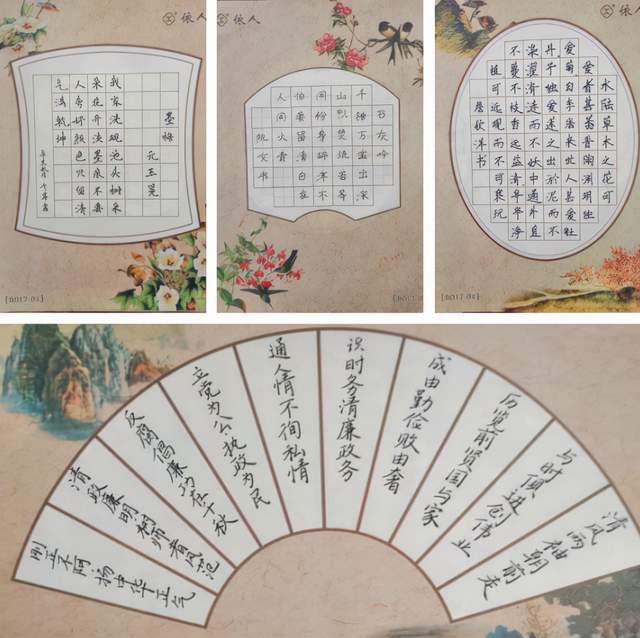 依人
墨梅
元王冕
我家洗砚池头树朵
花开淡墨痕不要
人夸好颜色只留清
气满乾坤
依人
石灰吟
千锤万凿出深
闲粉骨碎浑不
书
依人
水陆草木之花可
爱者甚蕃晋陶渊明独
爱菊自李唐来世人甚爱牡
丹予独爱莲之出於泥而不
染濯清涟而不妖中通外直
不蔓不枝香远益清亭亭净
植可远观而不可亵玩
詹钦洋书
清风两袖朝前走
与时俱进创伟业
历览前贤国与家
成由勤俭败由奢
识时务清廉政务
通人情不徇私情
立党为公执政为民
反腐倡廉功在千秋
清政廉明树师者风范
刚正不阿扬中华正气